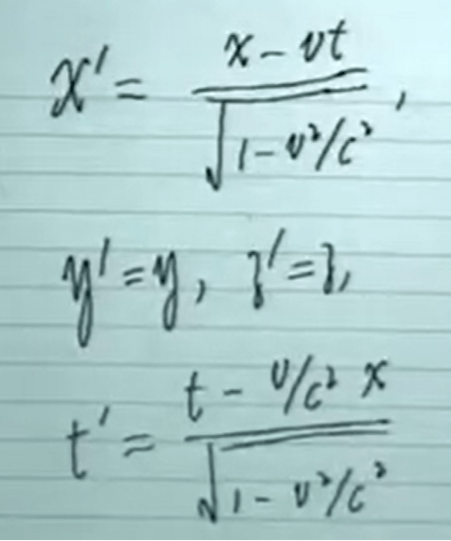 x' = (x - vt) / √(1 - v²/c²),
y' = y, z' = z,
t' = (t - v/c² x) / √(1 - v²/c²)